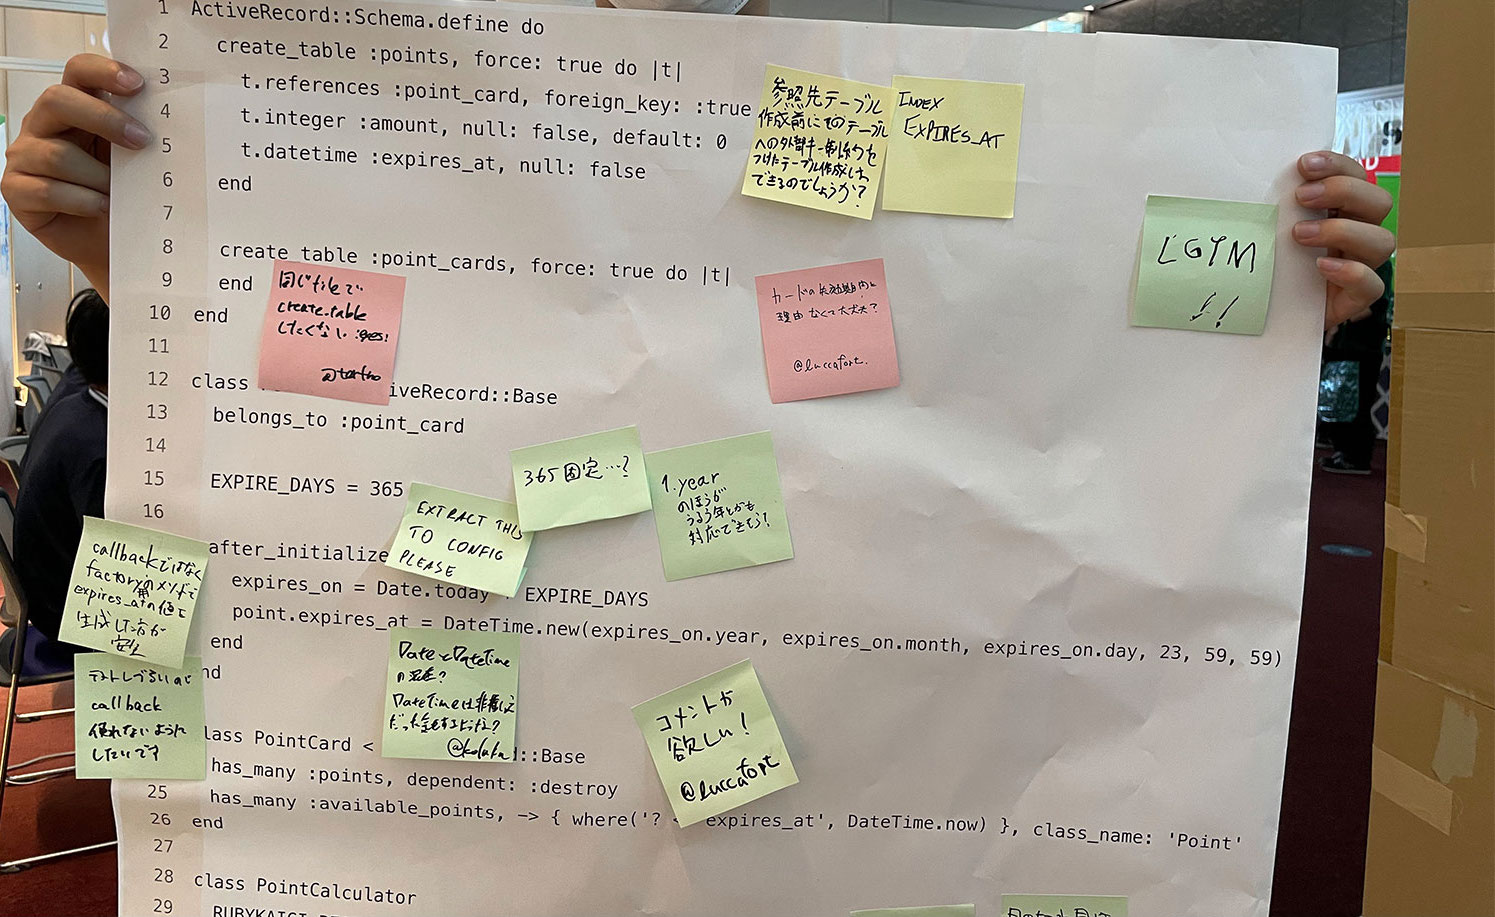 1 ActiveRecord::Schema.define do
2 create_table :points, force: true do |t|
3 t.references :point_card, foreign_key: :true
4 t.integer :amount, null: false, default: 0
5 t.datetime :expires_at, null: false
6 end
7
8 create_table :point_cards, force: true do |t|
9 end
10 end
11
12 class iveRecord::Base
13 belongs_to :point_card
14
15 EXPIRE_DAYS = 365
16
after_initialize
expires_on = Date.today EXPIRE_DAYS
point.expires_at = DateTime.new(expires_on.year, expires_on.month, expires_on.day, 23, 59, 59)
end
nd
lass PointCard < ::Base
has_many :points, dependent: :destroy
25 has_many :available_points, -> { where('? < expires_at', DateTime.now) }, class_name: 'Point'
26 end
27
28 class PointCalculator
29
参照先テーブル
作成前にそのテーブル
への外部キー制約を
つけたテーブル作成しは
できるのでしょうか?
INDEX
EXPIRES_AT
LGTM
!!
同じなまえで
create_table
したくない
カードの
理由なくて大丈夫?
@luccafort
365固定…?
1.year
のほうが
うるう年とかも
対応できそう!
EXTRACT THIS
TO CONFIG
PLEASE
callbackではなく
factory用のメソッドで
expires_atの値を
生成した方が
安全
テストしづらいので
callback
使わないように
したいです
DateとDateTime
の混在?
DateTimeは非推奨
だった
コメントが
欲しい!
@luccafort